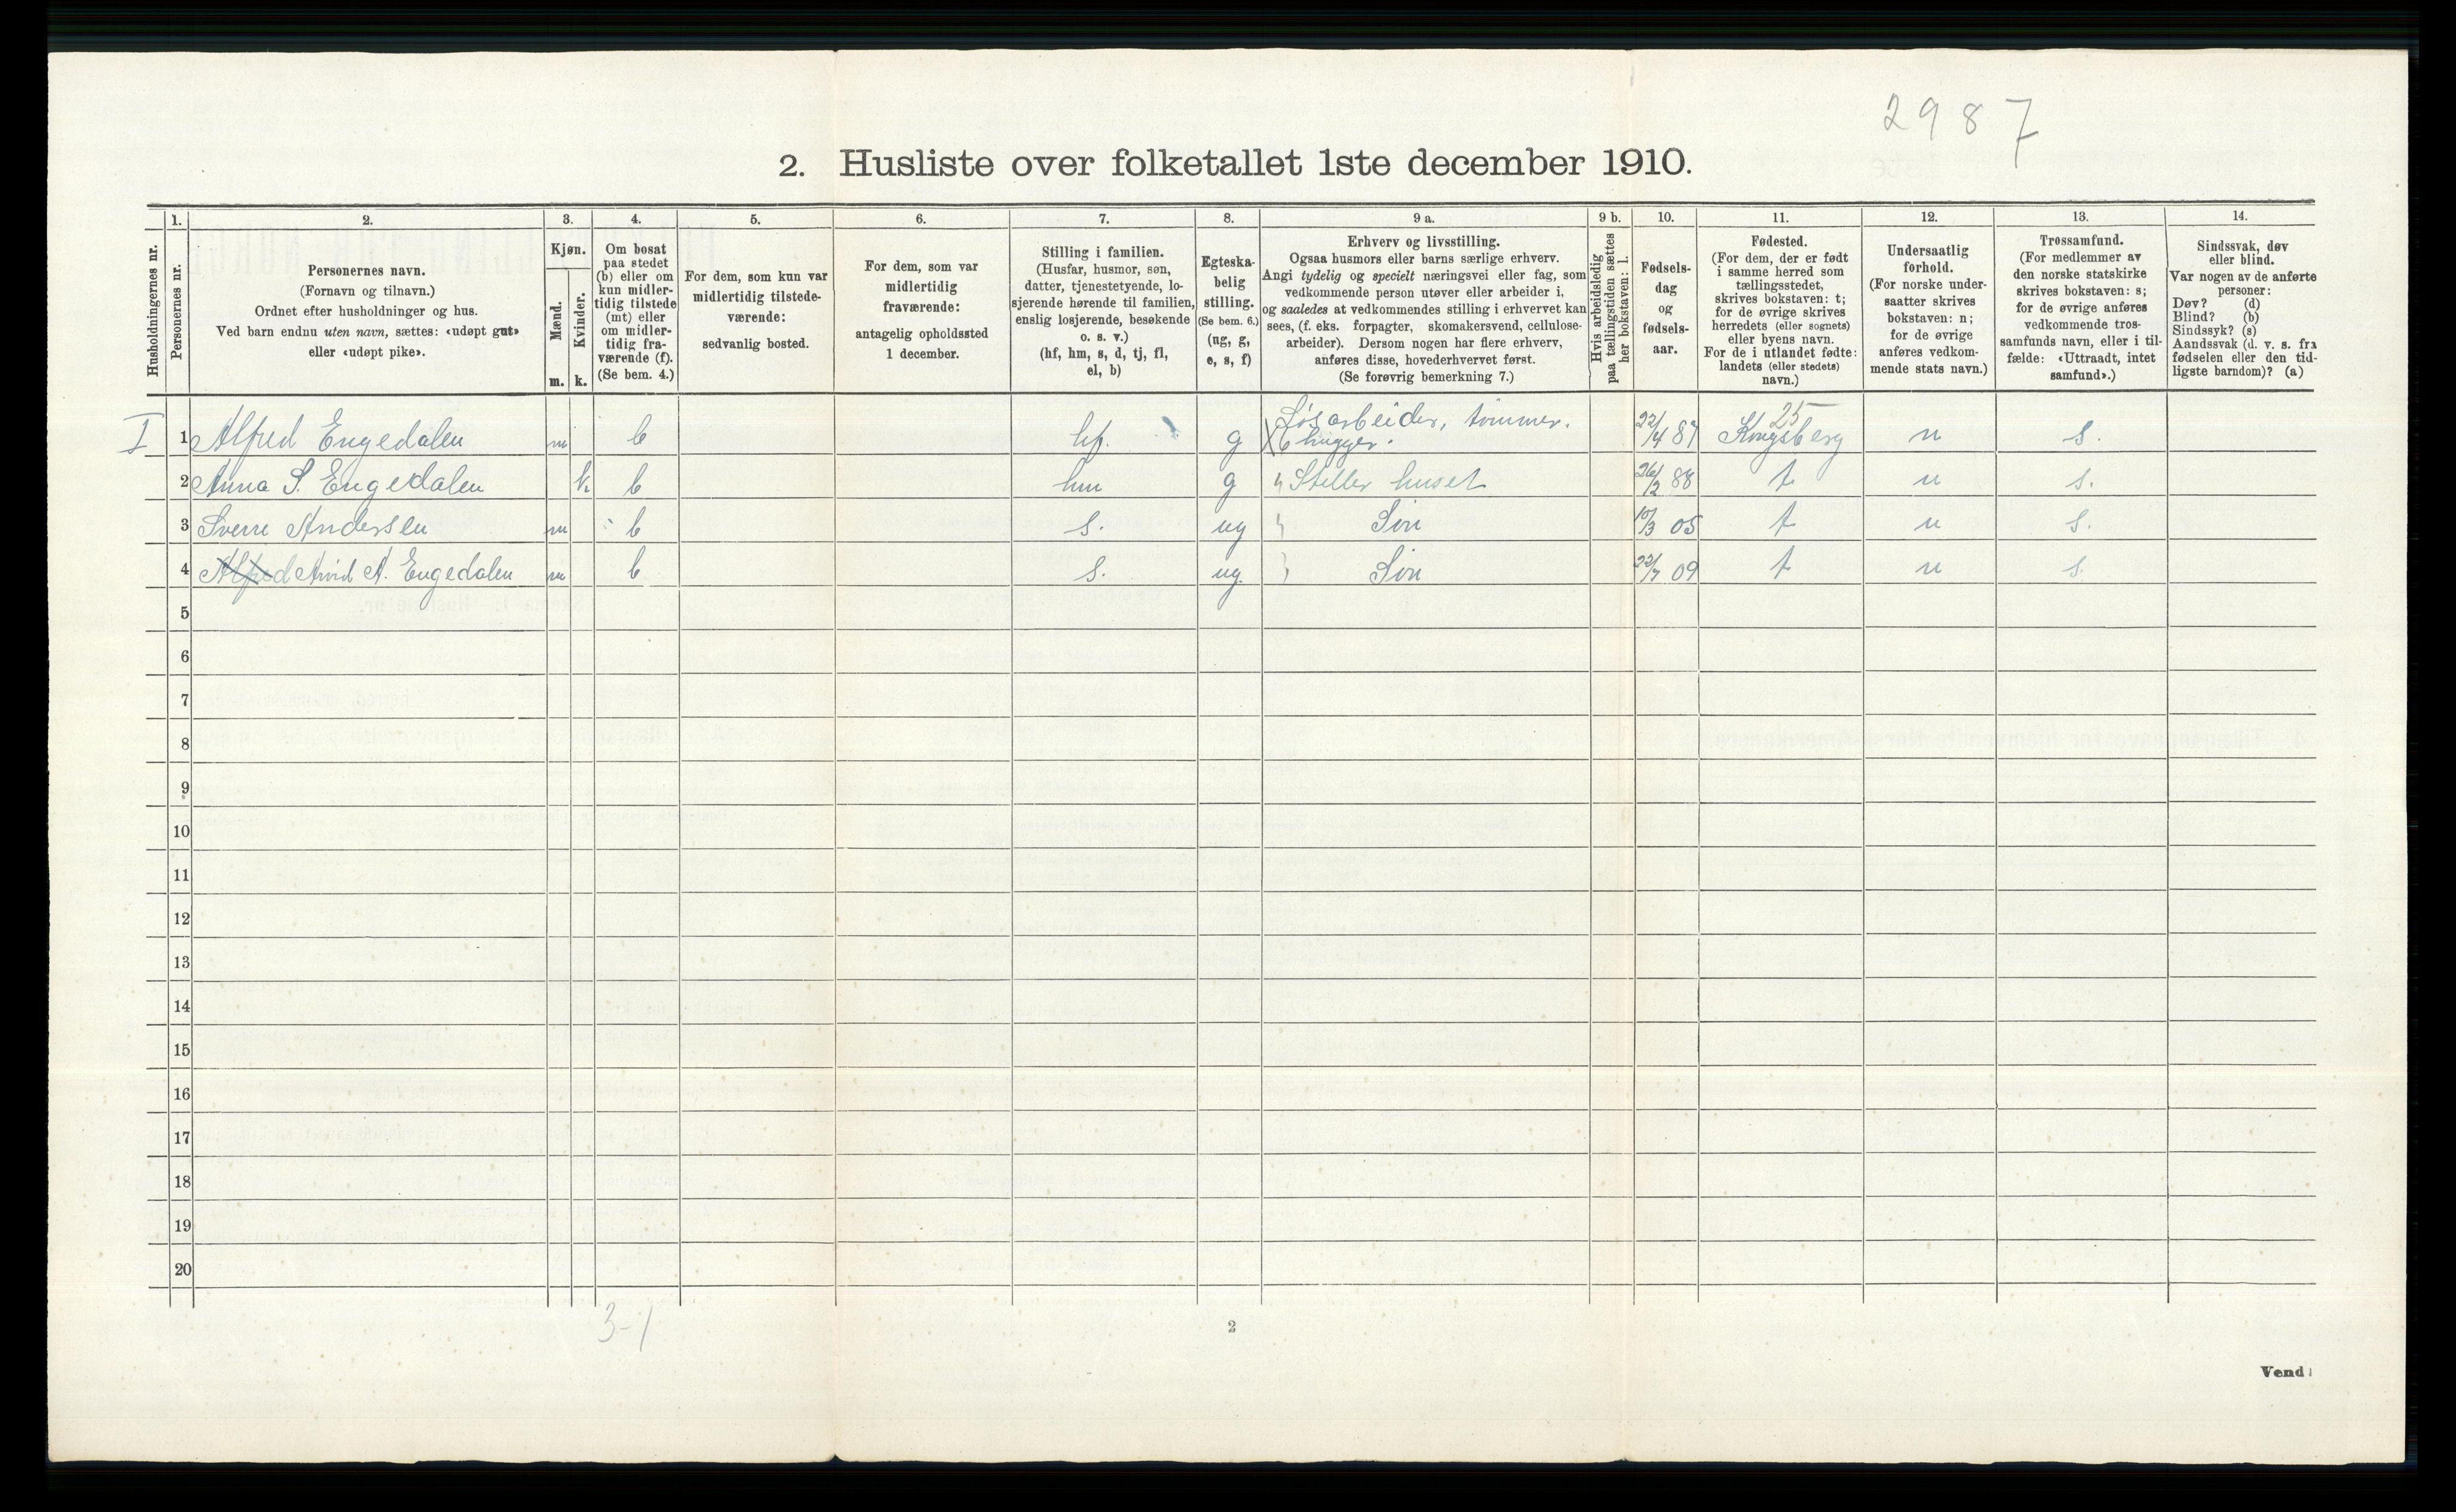 2987
2. Husliste over folketallet 1ste december 1910.
Husholdningernes nr.
1. Personernes nr.
2. Personernes navn.
(Fornavn og tilnavn.)
Ordnet efter husholdninger og hus.
Ved barn endnu uten navn, sættes: «udøpt gut»
eller «udøpt pike».
3. Kjøn.
Mænd. m.
Kvinder. k.
4. Om bosat
paa stedet
(b) eller om
kun midler-
tidig tilstede
(mt) eller
om midler-
tidig fra-
værende (f).
(Se bem. 4.)
5. For dem, som kun var
midlertidig tilstede-
værende:
sedvanlig bosted.
6. For dem, som var
midlertidig
fraværende:
antagelig opholdssted
1 december.
7. Stilling i familien.
(Husfar, husmor, søn,
datter, tjenestetyende, lo-
sjerende hørende til familien,
enslig losjerende, besøkende
o. s. v.)
(hf, hm, s, d, tj, fl,
el, b)
8. Egteska-
belig
stilling.
(Se bem. 6.)
(ug, g,
e, s, f)
9 a. Erhverv og livsstilling.
Ogsaa husmors eller barns særlige erhverv.
Angi tydelig og specielt næringsvei eller fag, som
vedkommende person utøver eller arbeider i,
og saaledes at vedkommendes stilling i erhvervet kan
sees, (f. eks. forpagter, skomakersvend, cellulose-
arbeider). Dersom nogen har flere erhverv,
anføres disse, hovederhvervet først.
(Se forøvrig bemerkning 7.)
9 b. Hvis arbeidsledig
paa tællingstiden sættes
her bokstaven: l.
10. Fødsels-
dag
og
fødsels-
aar.
11. Fødested.
(For dem, der er født
i samme herred som
tællingsstedet,
skrives bokstaven: t;
for de øvrige skrives
herredets (eller sognets)
eller byens navn.
For de i utlandet fødte:
landets (eller stedets)
navn.)
12. Undersaatlig
forhold.
(For norske under-
saatter skrives
bokstaven: n;
for de øvrige
anføres vedkom-
mende stats navn.)
13. Trossamfund.
(For medlemmer av
den norske statskirke
skrives bokstaven: s;
for de øvrige anføres
vedkommende tros-
samfunds navn, eller i til-
fælde: «Uttraadt, intet
samfund».)
14. Sindssvak, døv
eller blind.
Var nogen av de anførte
personer:
Døv? (d)
Blind? (b)
Sindssyk? (s)
Aandssvak (d. v. s. fra
fødselen eller den tid-
ligste barndom)? (a)
I 1 Alfred Engedalen m b hf. g Løsarbeider, tømmer. hugger. 22/4 87 25 Kongsberg n s.
2 Anna S. Engedalen k b hm g Steller huset 26/2 88 t n s.
3 Sverre Andersen m b s. ug Søn 10/3 05 t n s.
4 Alfred Arvid A. Engedalen m b s. ug. Søn 22/7 09 t n s
5
6
7
8
9
10
11
12
13
14
15
16
17
18
19
20
3-1
2
Vend!